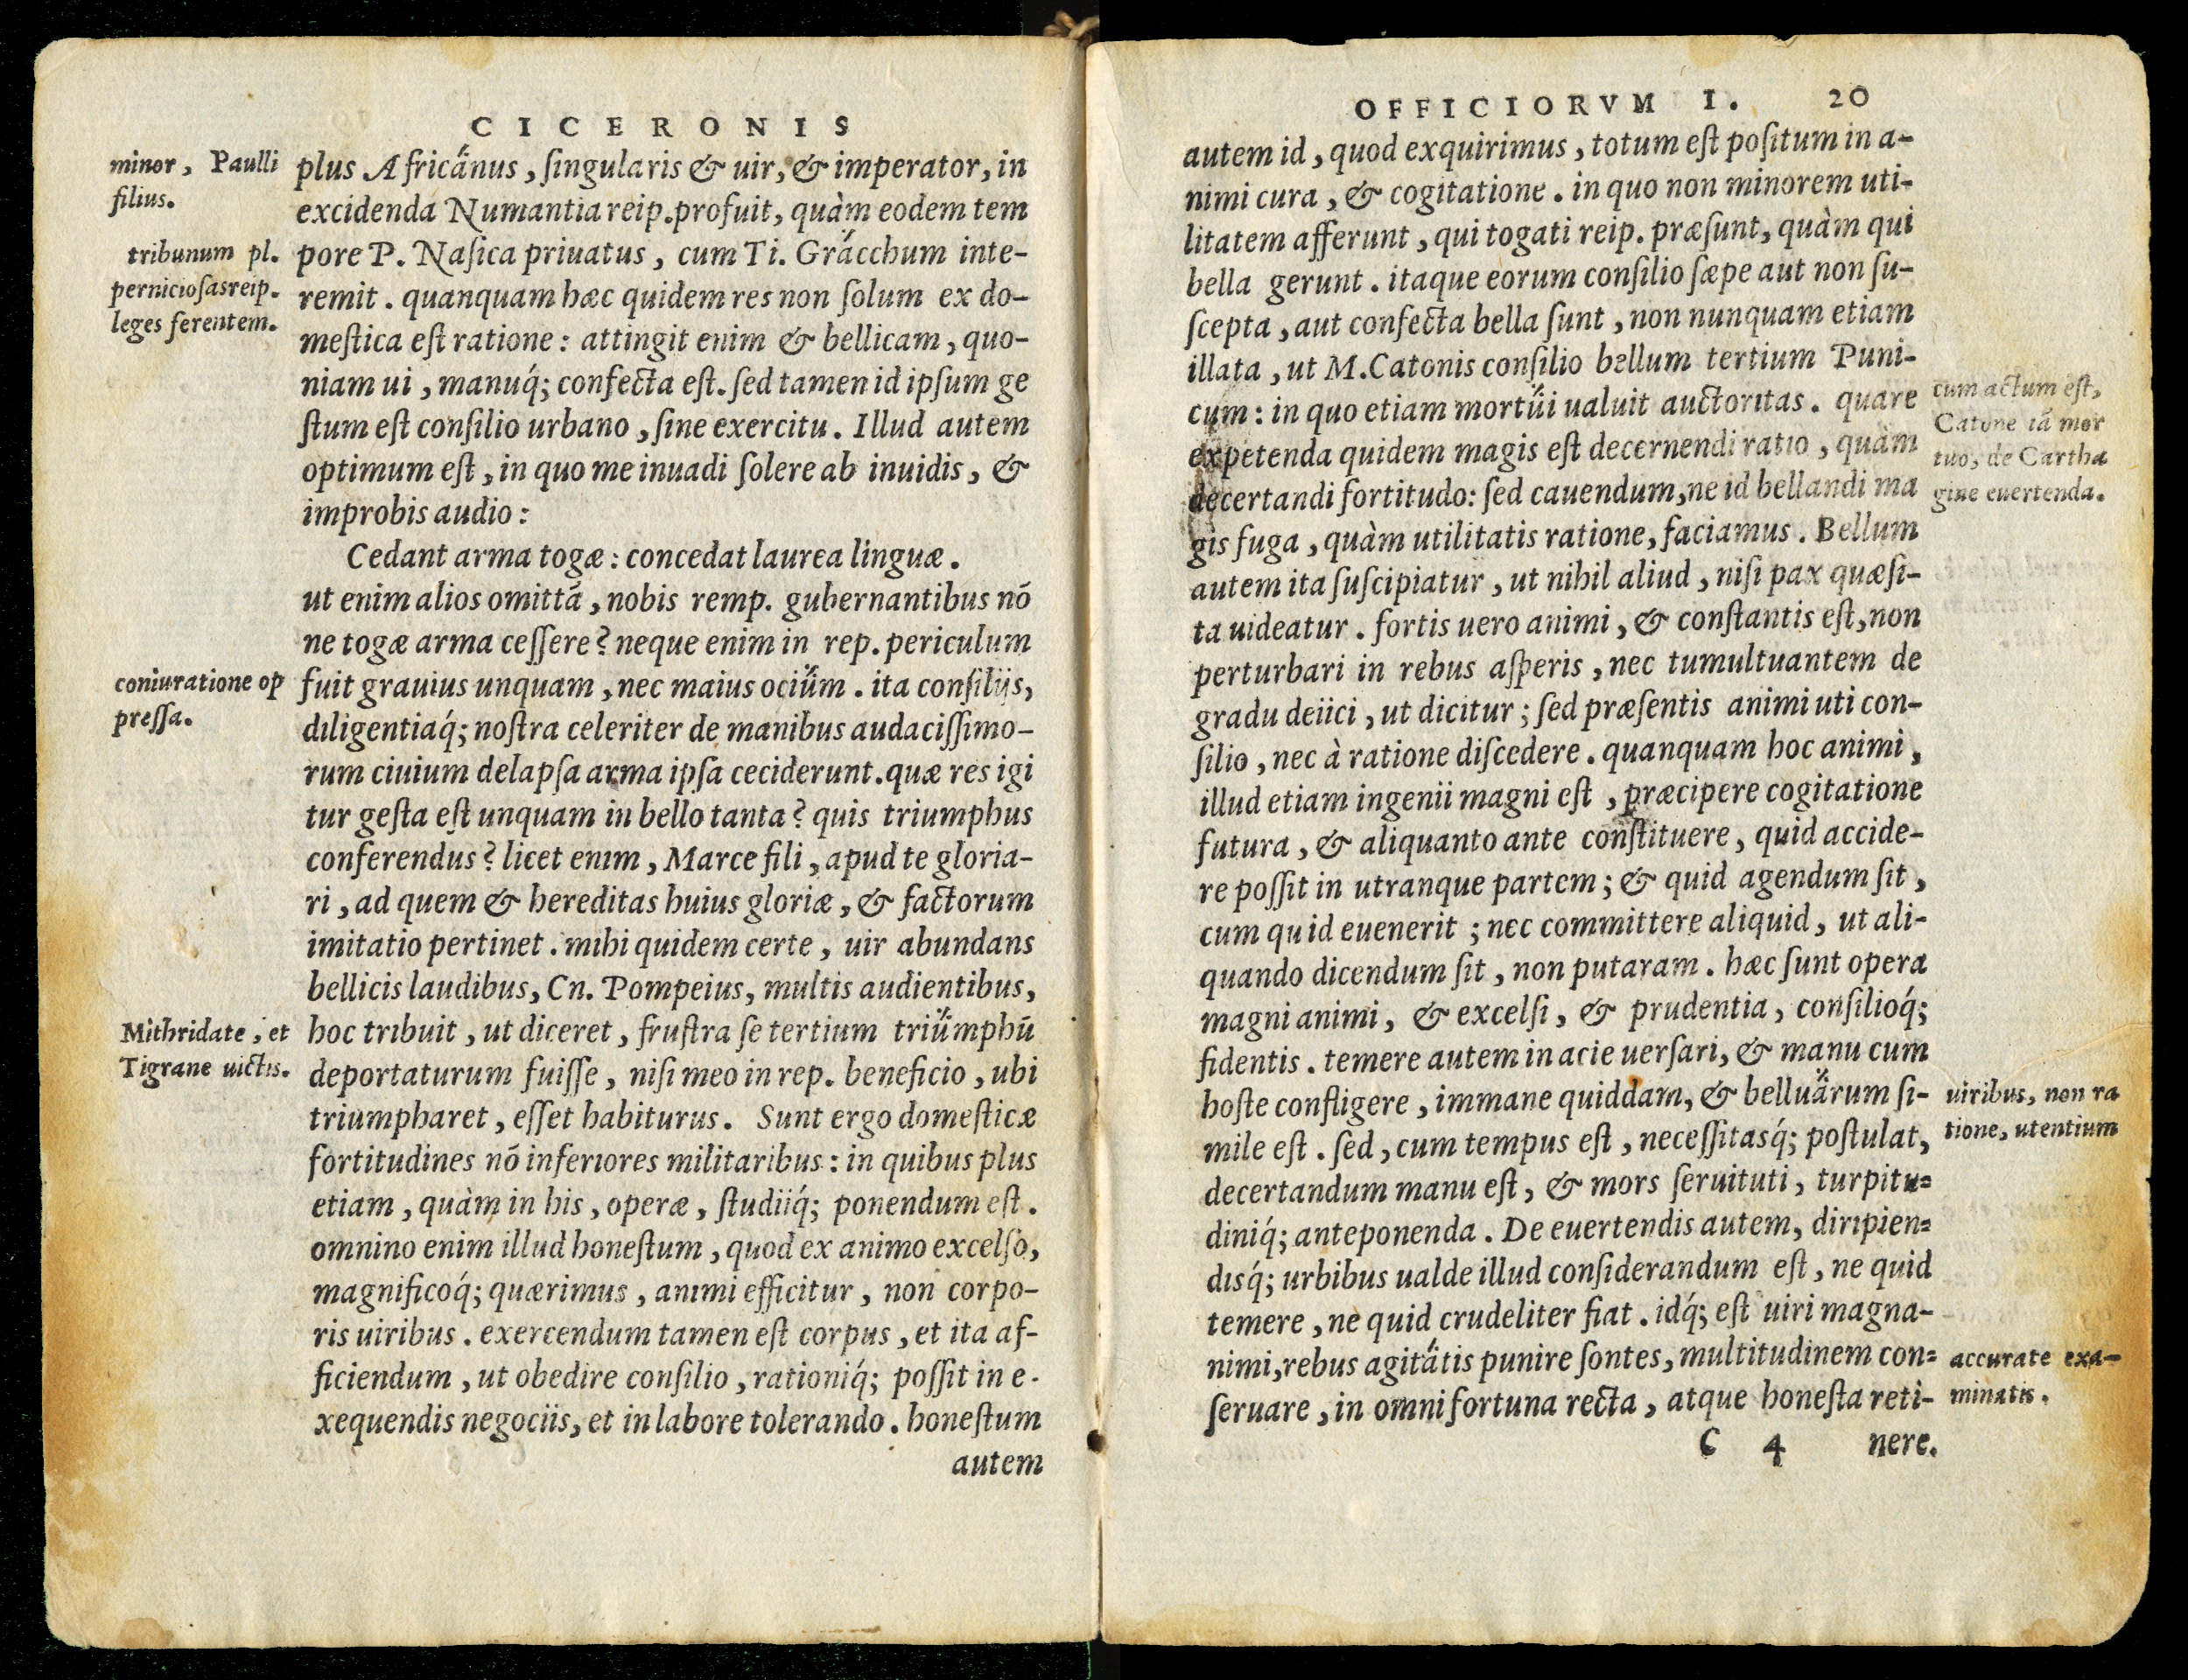 CICERONIS
minor, Paulli
filius.
tribunum pl.
perniciosas reip.
leges ferentem.
coniuratione op
pressa.
Mithridate, et
Tigrane uictis.
plus Africa̋nus, ſingularis & uir, & imperator, in
excidenda Numantia reip. profuit, quàm eodem tem
pore P. Naſica priuatus, cum Ti. Gra̋cchum inte-
remit. quanquam hæc quidem res non ſolum ex do-
meſtica eſt ratione: attingit enim & bellicam, quo-
niam ui, manuq́; confecta eſt. ſed tamen id ipſum ge
ſtum eſt conſilio urbano, ſine exercitu. Illud autem
optimum eſt, in quo me inuadi ſolere ab inuidis, &
improbis audio:
Cedant arma togæ: concedat laurea linguæ.
ut enim alios omittã, nobis remp. gubernantibus nõ
ne togæ arma ceſſere? neque enim in rep. periculum
fuit grauius unquam, nec maius ociűm. ita conſiliis,
diligentiaq́; noſtra celeriter de manibus audaciſſimo-
rum ciuium delapſa arma ipſa ceciderunt. quæ res igi
tur geſta eſt unquam in bello tanta? quis triumphus
conferendus? licet enim, Marce fili, apud te gloria-
ri, ad quem & hereditas huius gloriæ, & factorum
imitatio pertinet. mihi quidem certe, uir abundans
bellicis laudibus, Cn. Pompeius, multis audientibus,
hoc tribuit, ut diceret, fruſtra ſe tertium triűmphũ
deportaturum fuiſſe, niſi meo in rep. beneficio, ubi
triumpharet, eſſet habiturus. Sunt ergo domeſticæ
fortitudines nõ inferiores militaribus: in quibus plus
etiam, quàm in his, operæ, ſtudiiq́; ponendum eſt.
omnino enim illud honeſtum, quod ex animo excelſo,
magnificoq́; quærimus, animi efficitur, non corpo-
ris uiribus. exercendum tamen eſt corpus, et ita af-
ficiendum, ut obedire conſilio, rationiq́; poſſit in e-
xequendis negociis, et in labore tolerando. honeſtum
autem
OFFICIORVM I. 20
autem id, quod exquirimus, totum eſt poſitum in a-
nimi cura, & cogitatione. in quo non minorem uti-
litatem afferunt, qui togati reip. præſunt, quàm qui
bella gerunt. itaque eorum conſilio ſæpe aut non ſu-
ſcepta, aut confecta bella ſunt, non nunquam etiam
illata, ut M. Catonis conſilio bellum tertium Puni-
cum: in quo etiam mortűi ualuit auctoritas. quare
expetenda quidem magis eſt decernendi ratio, quàm
decertandi fortitudo: ſed cauendum, ne id bellandi ma
gis fuga, quàm utilitatis ratione, faciamus. Bellum
autem ita ſuſcipiatur, ut nihil aliud, niſi pax quæſi-
ta uideatur. fortis uero animi, & conſtantis eſt, non
perturbari in rebus aſperis, nec tumultuantem de
gradu deiici, ut dicitur; ſed præſentis animi uti con-
ſilio, nec à ratione diſcedere. quanquam hoc animi,
illud etiam ingenii magni eſt, præcipere cogitatione
futura, & aliquanto ante conſtituere, quid accide-
re poſſit in utranque partem; & quid agendum ſit,
cum quid euenerit; nec committere aliquid, ut ali-
quando dicendum ſit, non putaram. hæc ſunt opera
magni animi, & excelſi, & prudentia, conſilioq́;
fidentis. temere autem in acie uerſari, & manu cum
hoſte confligere, immane quiddam, & bellua̋rum ſi-
mile eſt. ſed, cum tempus eſt, neceſſitasq́; poſtulat,
decertandum manu eſt, & mors ſeruituti, turpitu=
diniq́; anteponenda. De euertendis autem, diripien=
disq́; urbibus ualde illud conſiderandum eſt, ne quid
temere, ne quid crudeliter fiat. idq́; eſt uiri magna-
nimi, rebus agita̋tis punire ſontes, multitudinem con=
ſeruare, in omni fortuna recta, atque honeſta reti-
C 4 nere.
cum actum eſt,
Catone iã mor
tuo, de Cartha
gine euertenda.
uiribus, non ra
tione, utentium
accurate exa-
minatis.